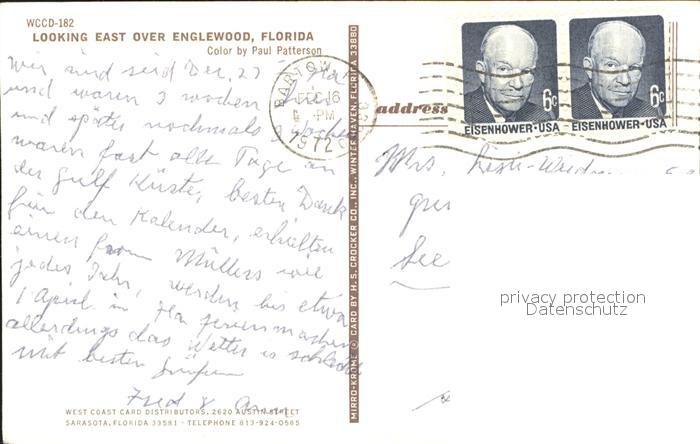 WCCD-182
LOOKING EAST OVER ENGLEWOOD, FLORIDA
Color by Paul Patterson
wir sind seid Dec. 27 in Fla
und waren 3 wochen hier
und später nochmals 3 Wochen
waren fast alle Tage an
der Gulf Küste, besten Dank
für den Kalender, erhielten
einen from Müllers wie
jedes Jahr, werden bis etwa
1 April in Fla ferienmachen
allerdings das Wetter is schlecht
mit besten Grüssen
Fred & Anna
WEST COAST CARD DISTRIBUTORS, 2620 AUSTIN STREET
SARASOTA, FLORIDA 33581 · TELEPHONE 813-924-0585
MIRRO-KROME ® CARD BY H. S. CROCKER CO., INC., WINTER HAVEN, FLORIDA 33880
BARTOW
FEB 16
PM
1972
address
6c
EISENHOWER·USA
6c
EISENHOWER·USA
Mrs.
See
privacy protection
Datenschutz